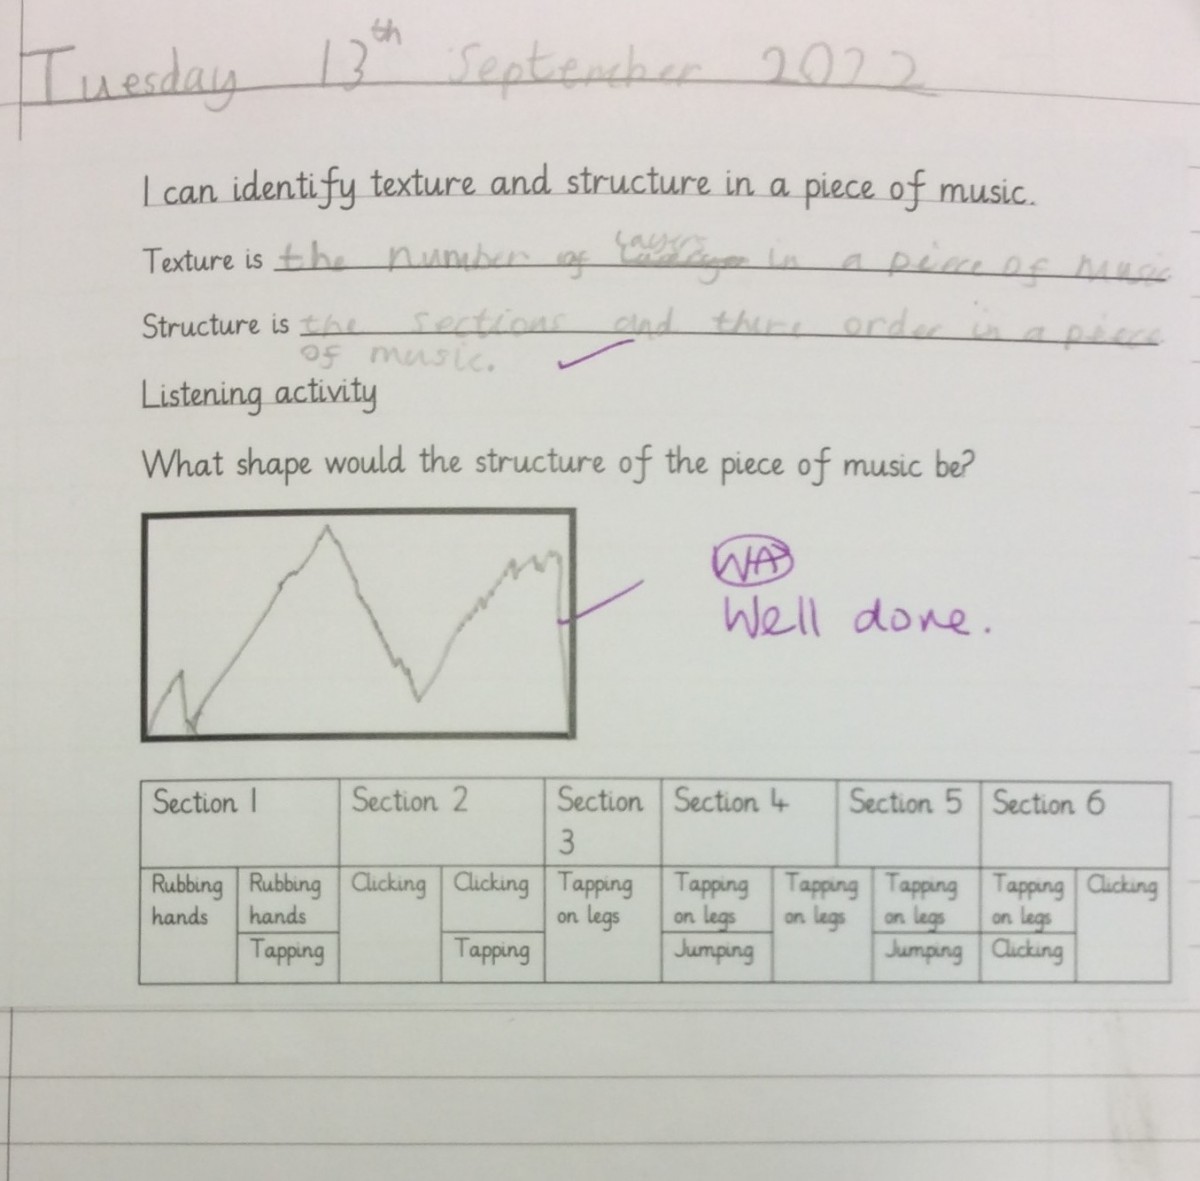 Tuesday 13th September 2022
I can identify texture and structure in a piece of music.
Texture is the number of layers in a piece of music
Structure is the sections and there order in a piece
of music.
Listening activity
What shape would the structure of the piece of music be?
WA
Well done.
Section 1 Section 2 Section 3 Section 4 Section 5 Section 6
Rubbing hands Rubbing hands Clicking Clicking Tapping on legs Tapping on legs Tapping on legs Tapping on legs Tapping on legs Clicking
Tapping Tapping Jumping Jumping Clicking